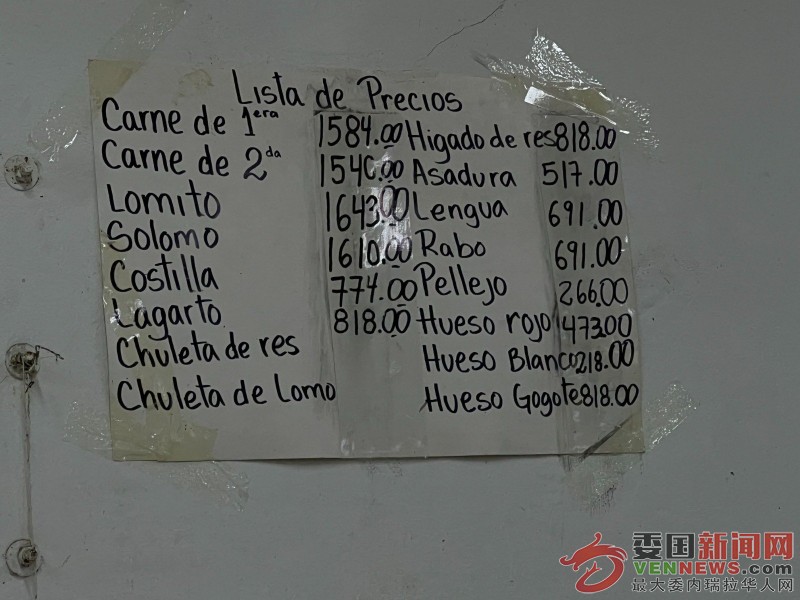 Lista de Precios
Carne de 1era 1584.00
Carne de 2da 1540.00
Lomito 1643.00
Solomo 1610.00
Costilla 774.00
Lagarto 818.00
Chuleta de res
Chuleta de Lomo
Higado de res 818.00
Asadura 517.00
Lengua 691.00
Rabo 691.00
Pellejo 266.00
Hueso rojo 473.00
Hueso Blanco 218.00
Hueso Gogote 818.00
委国新闻网
VENNEWS.com
最大委内瑞拉华人网